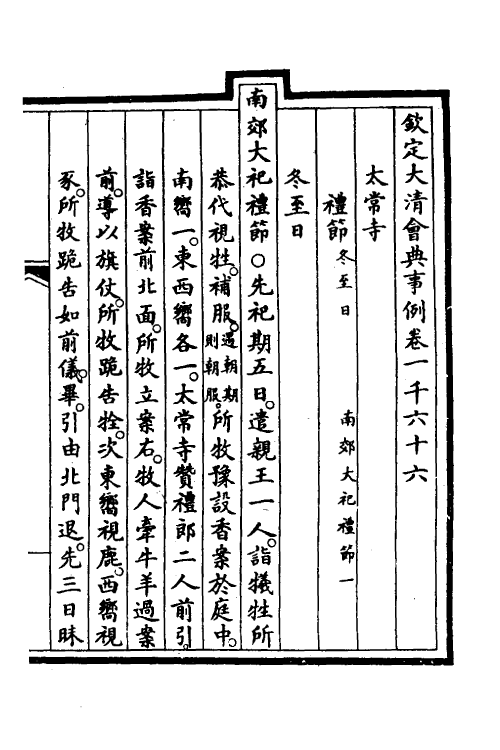 欽定大清會典事例卷一千六十六
太常寺
禮節冬至日 南郊大祀禮節一
冬至日
南郊大祀禮節○先祀期五日。遣親王一人。詣犧牲所
恭代視牲。補服。遇朝期則朝服。所牧豫設香案於庭中。
南嚮一。東西嚮各一。太常寺贊禮郎二人前引。
詣香案前北面。所牧立案右。牧人牽牛羊過案
前。導以旗仗。所牧跪告牷。次東嚮視鹿。西嚮視
豕。所牧跪告如前儀。畢。引由北門退。先三日昧